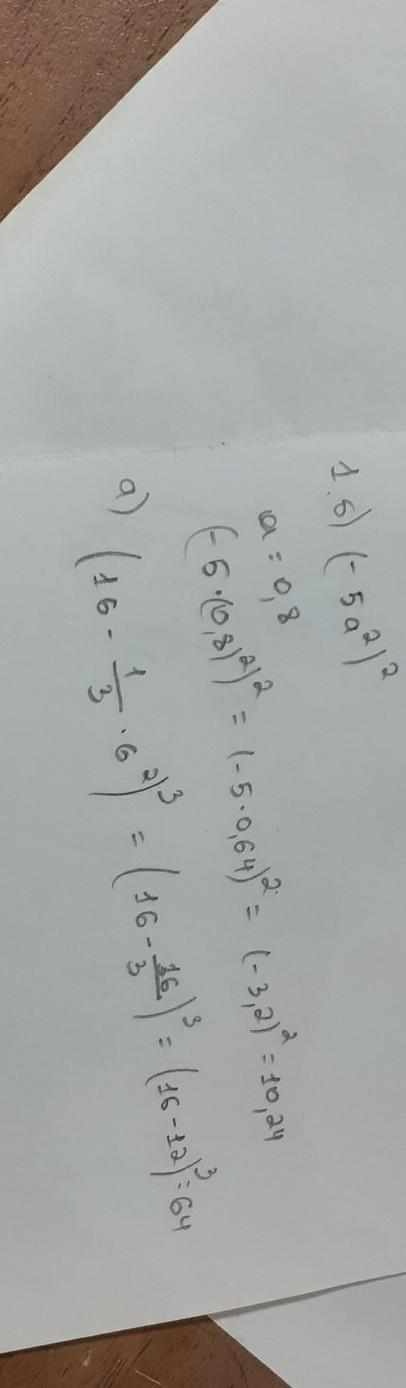 1. б) (-5a²)²
a = 0,8
(-5·(0,8)²)² = (-5·0,64)² = (-3,2)² = 10,24
а) (16 - 1/3 · 6²)³ = (16 - 16/3)³ = (16 - 12)³ = 64